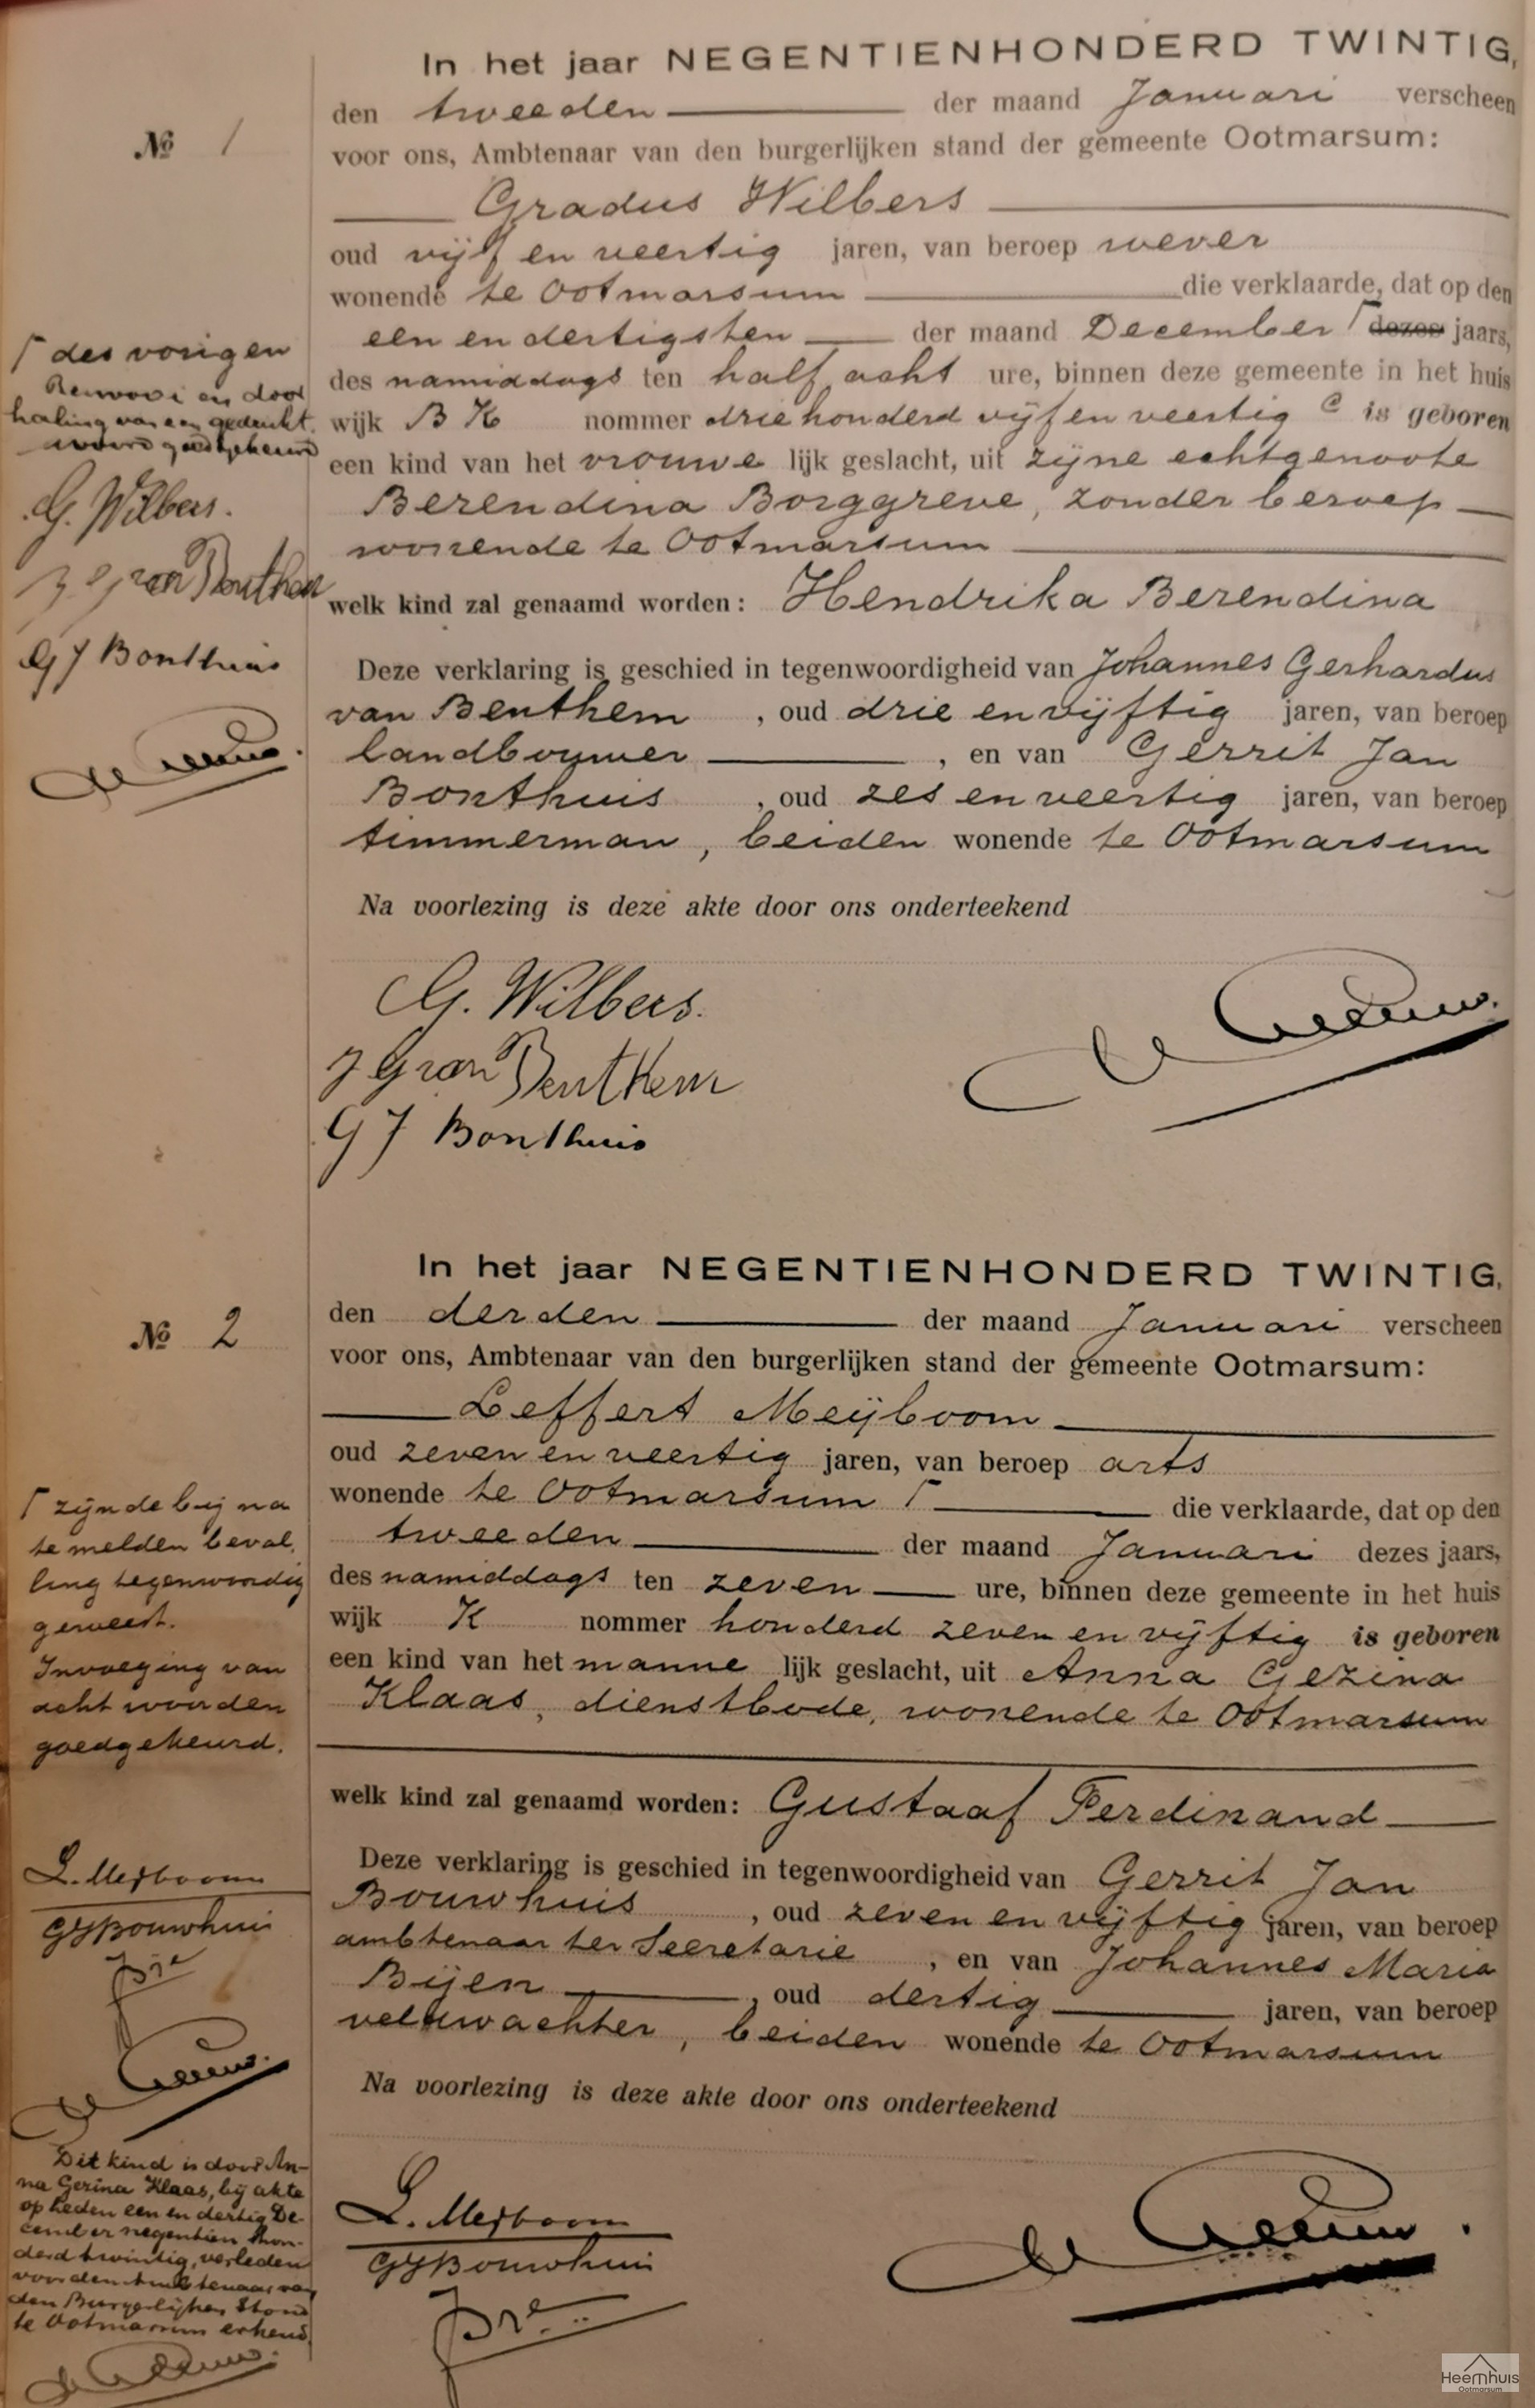 In het jaar NEGENTIENHONDERD TWINTIG,
№ 1
den tweeden der maand Januari verscheen
voor ons, Ambtenaar van den burgerlijken stand der gemeente Ootmarsum:
Gradus Wilbers
oud vijf en veertig jaren, van beroep wever
wonende te Ootmarsum die verklaarde, dat op den
een en dertigsten der maand December Γ dezes jaars,
des namiddags ten half acht ure, binnen deze gemeente in het huis
wijk B K nommer drie honderd vijf en veertig c is geboren
een kind van het vrouwe lijk geslacht, uit zijne echtgenoote
Berendina Borggreve, zonder beroep
wonende te Ootmarsum
welk kind zal genaamd worden: Hendrika Berendina
Deze verklaring is geschied in tegenwoordigheid van Johannes Gerhardus
van Benthem, oud drie en vijftig jaren, van beroep
landbouwer, en van Gerrit Jan
Bonthuis, oud zes en veertig jaren, van beroep
timmerman, beiden wonende te Ootmarsum
Na voorlezing is deze akte door ons onderteekend
Γ des vorigen
Renvooi en door
haling van een gedrukt
woord goedgekeurd
G. Wilbers.
J G van Benthem
G J Bonthuis
G. Wilbers.
J G van Benthem
G J Bonthuis
In het jaar NEGENTIENHONDERD TWINTIG,
№ 2
den derden der maand Januari verscheen
voor ons, Ambtenaar van den burgerlijken stand der gemeente Ootmarsum:
Leffert Meijboom
oud zeven en veertig jaren, van beroep arts
wonende te Ootmarsum Γ die verklaarde, dat op den
tweeden der maand Januari dezes jaars,
des namiddags ten zeven ure, binnen deze gemeente in het huis
wijk K nommer honderd zeven en vijftig is geboren
een kind van het manne lijk geslacht, uit Anna Gezina
Klaas, dienstbode, wonende te Ootmarsum
welk kind zal genaamd worden: Gustaaf Ferdinand
Deze verklaring is geschied in tegenwoordigheid van Gerrit Jan
Bouwhuis, oud zeven en vijftig jaren, van beroep
ambtenaar ter Secretarie, en van Johannes Maria
Bijen, oud dertig jaren, van beroep
veldwachter, beiden wonende te Ootmarsum
Na voorlezing is deze akte door ons onderteekend
Γ zijnde bij na
te melden beval,
ling tegenwoordig
geweest.
Invoeging van
acht woorden
goedgekeurd.
L. Meijboom
GJBouwhuis
Dit kind is door An-
na Gezina Klaas, bij akte
op heden een en dertig De-
cember negentien hon-
derd twintig, verleden
voor den Ambtenaar van
den Burgerlijken Stand
te Ootmarsum erkend,
L. Meijboom
GJBouwhuis
Heemhuis
Ootmarsum